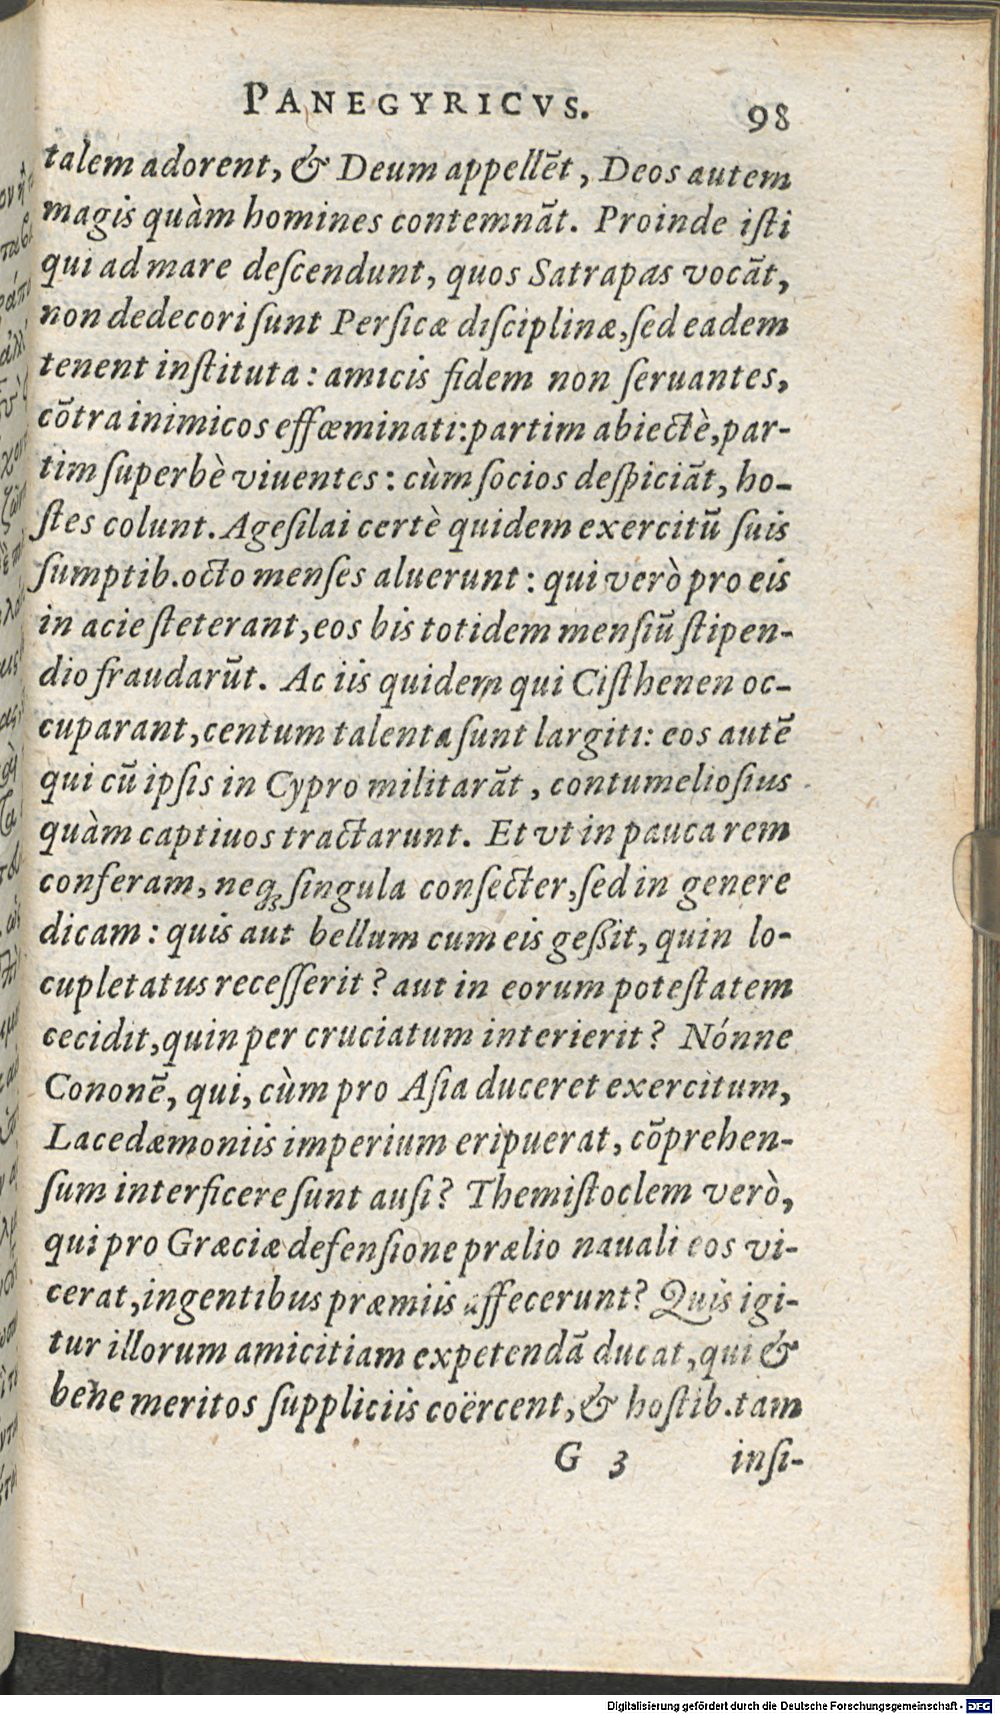 PANEGYRICVS. 98
talem adorent, & Deum appellẽt, Deos autem
magis quàm homines contemnãt. Proinde iſti
qui ad mare deſcendunt, quos Satrapas vocãt,
non dedecori ſunt Perſicæ diſciplinæ, ſed eadem
tenent inſtituta: amicis fidem non ſeruantes,
cõtra inimicos effœminati: partim abiectè, par-
tim ſuperbè viuentes: cùm ſocios deſpiciãt, ho-
ſtes colunt. Ageſilai certè quidem exercitũ ſuis
ſumptib. octo menſes aluerunt: qui verò pro eis
in acie ſteterant, eos bis totidem menſiũ ſtipen-
dio fraudarũt. Ac iis quidem qui Ciſthenen oc-
cuparant, centum talenta ſunt largiti: eos autẽ
qui cũ ipſis in Cypro militarãt, contumelioſius
quàm captiuos tractarunt. Et vt in pauca rem
conferam, neqꝫ ſingula conſecter, ſed in genere
dicam: quis aut bellum cum eis geſſit, quin lo-
cupletatus receſſerit? aut in eorum poteſtatem
cecidit, quin per cruciatum interierit? Nónne
Cononẽ, qui, cùm pro Aſia duceret exercitum,
Lacedæmoniis imperium eripuerat, cõprehen-
ſum interficere ſunt auſi? Themiſtoclem verò,
qui pro Græciæ defenſione prælio nauali eos vi-
cerat, ingentibus præmiis affecerunt? Quis igi-
tur illorum amicitiam expetendã ducat, qui &
bene meritos ſuppliciis coërcent, & hoſtib. tam
G 3 inſi-
Digitalisierung gefördert durch die Deutsche Forschungsgemeinschaft - DFG